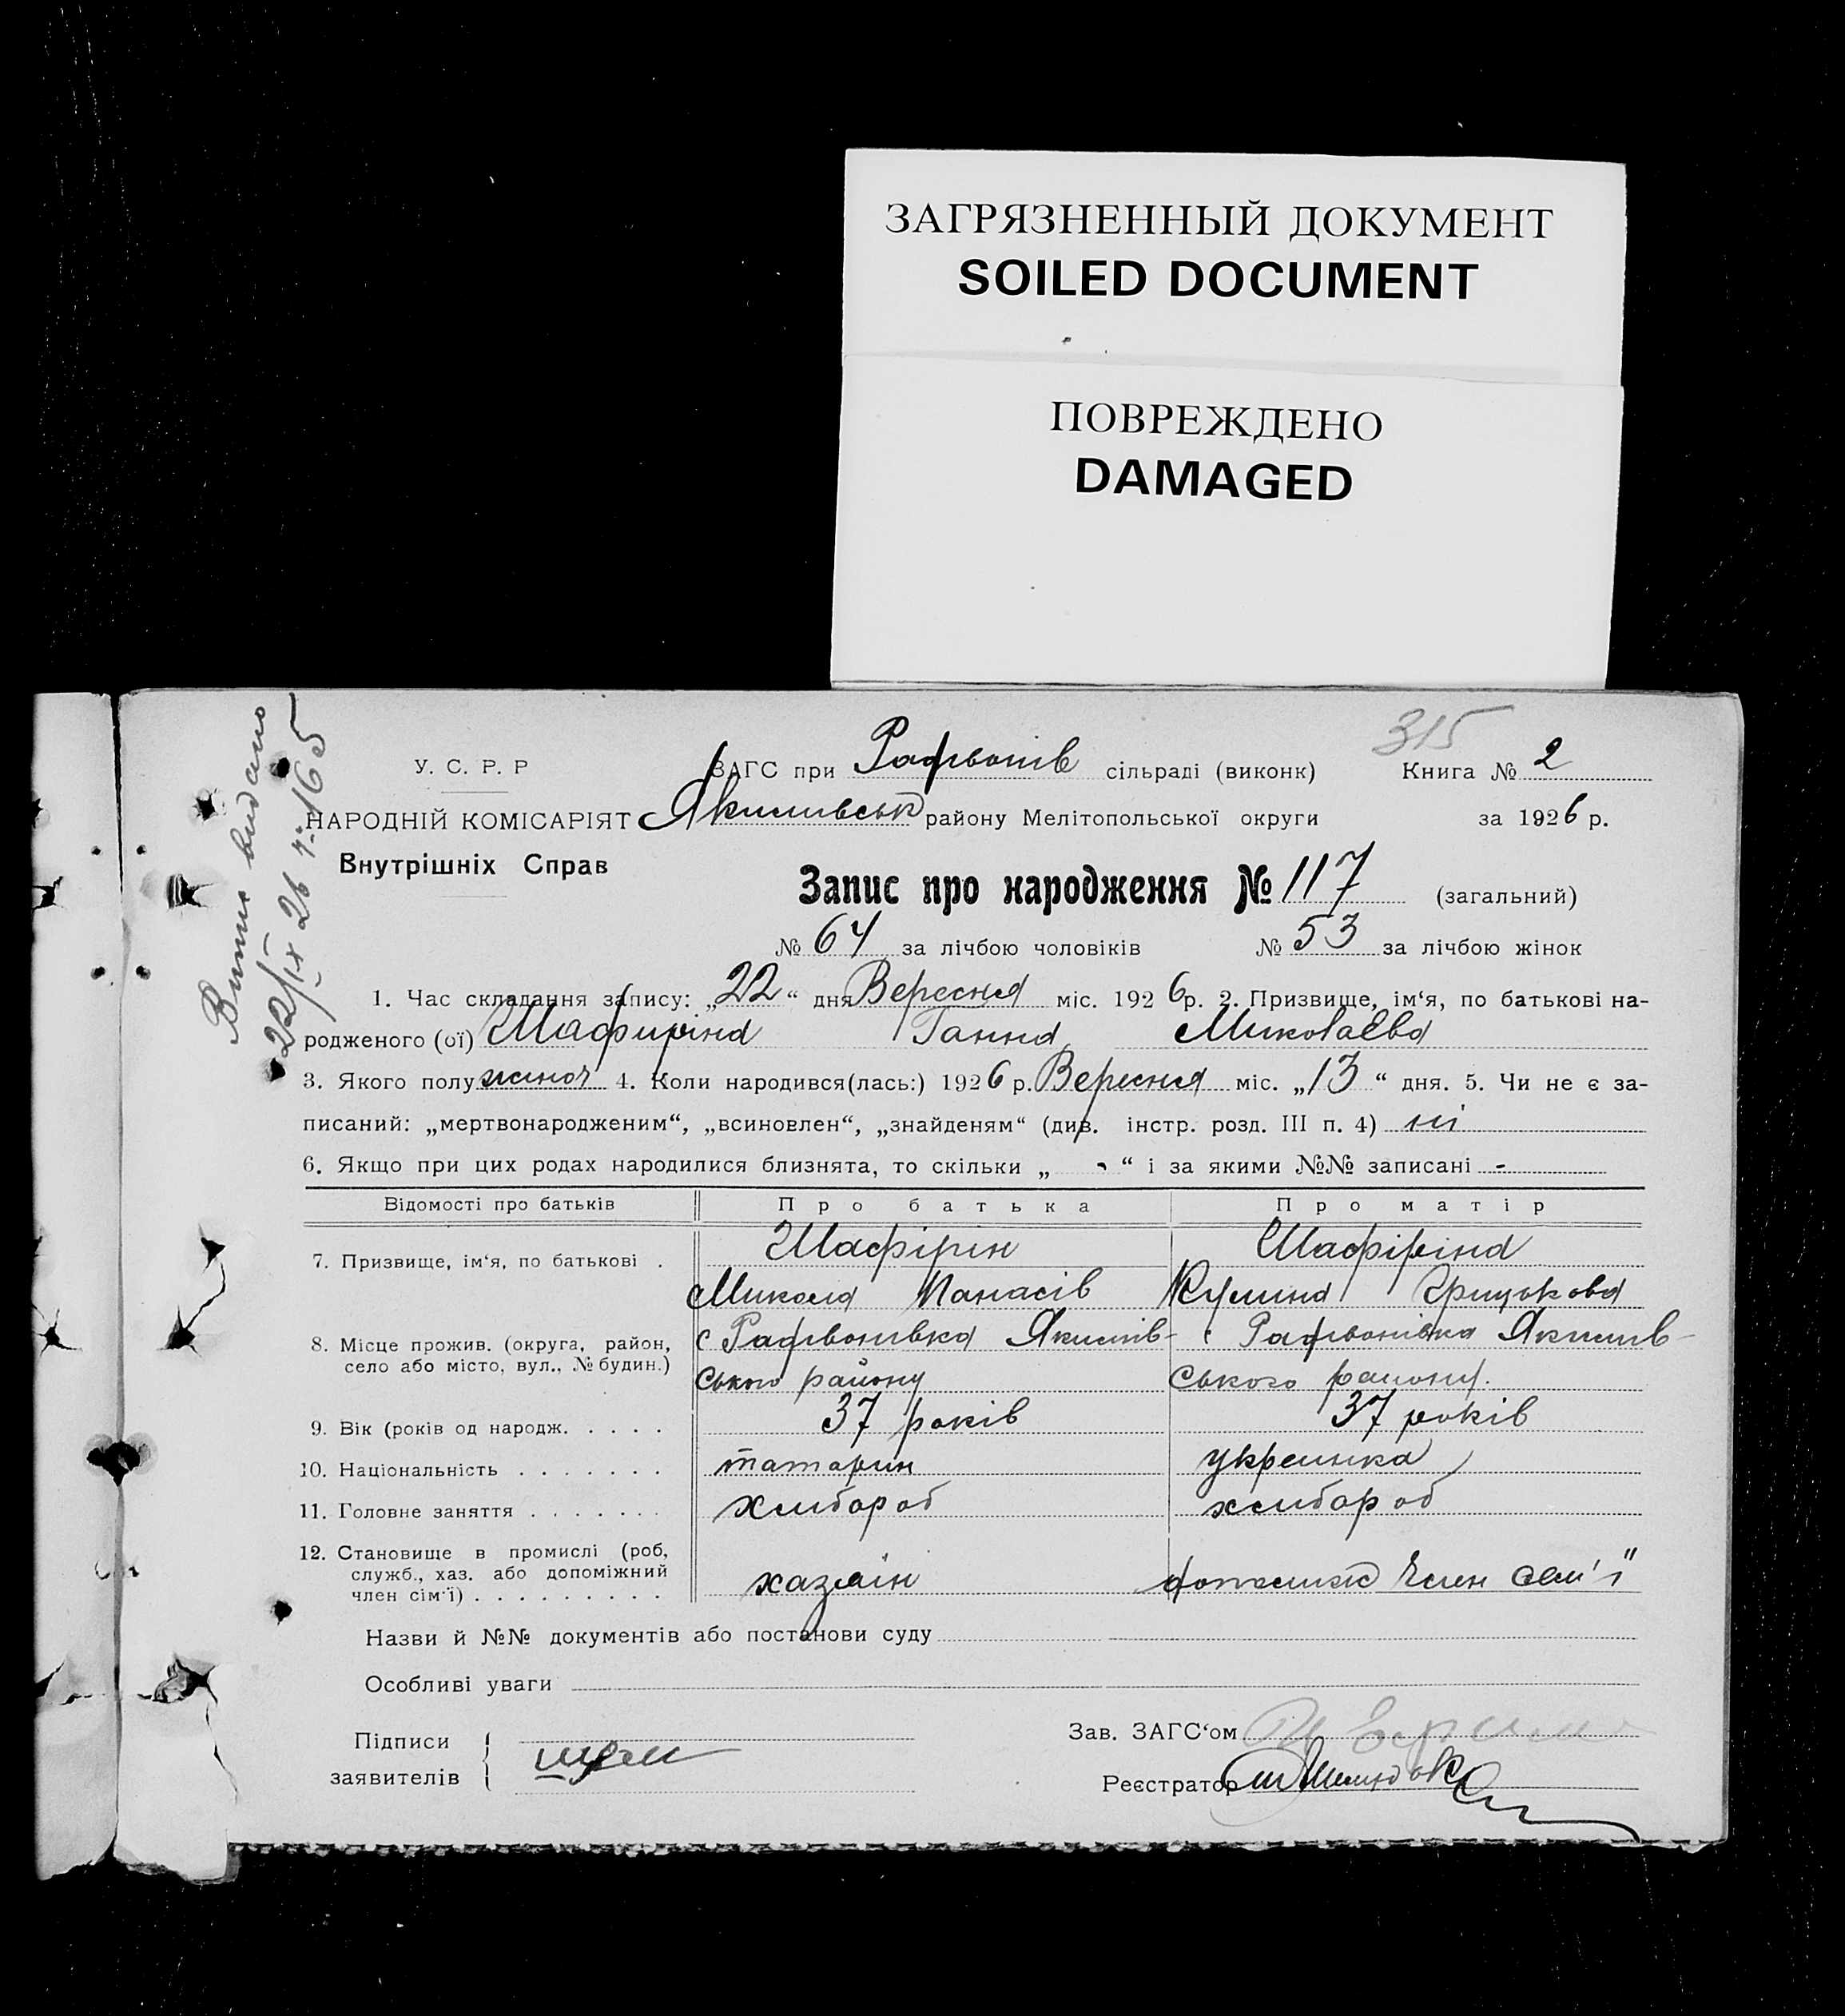 ЗАГРЯЗНЕННЫЙ ДОКУМЕНТ
SOILED DOCUMENT
ПОВРЕЖДЕНО
DAMAGED
315
У. С. Р. Р
ЗАГС при Рафвонів сільраді (виконк) Книга № 2
НАРОДНІЙ КОМІСАРІЯТ Якимівськ району Мелітопольської округи за 1926 р.
Внутрішніх Справ
Запис про народження № 117 (загальний)
№ 64 за лічбою чоловіків № 53 за лічбою жінок
Витяг видано
22/IX 26 р. 165
1. Час складання запису: „22“ дня Вересня міс. 1926р. 2. Призвище, ім‘я, по батькові на-
родженого (ої) Шафиріна Ганна Миколаєва
3. Якого полу жіноч 4. Коли народився(лась:) 1926 р. Вересня міс. „13“ дня. 5. Чи не є за-
писаний: „мертвонародженим“, „всиновлен“, „знайденям“ (див. інстр. розд. III п. 4) ні
6. Якщо при цих родах народилися близнята, то скільки „ - “ і за якими №№ записані -
Відомості про батьків Про батька Про матір
7. Призвище, ім‘я, по батькові . Шафірін Шафіріна
Микола Панасів Кулина Грицькова
8. Місце прожив. (округа, район, с Рафвонівка Якимів- с Рафвонівка Якимів-
село або місто, вул., № будин.) ського району ського району.
9. Вік (років од народж. . . . . 37 років 37 років
10. Національність . . . . . . . татарин українка
11. Головне заняття . . . . . . . хлибороб хлибороб
12. Становище в промислі (роб,
служб., хаз. або допоміжний
член сім‘ї) . . . . . . . . . хазяін допоміж член сем'ї
Назви й №№ документів або постанови суду
Особливі уваги
Підписи
заявителів
Зав. ЗАГС‘ом
Реєстратор